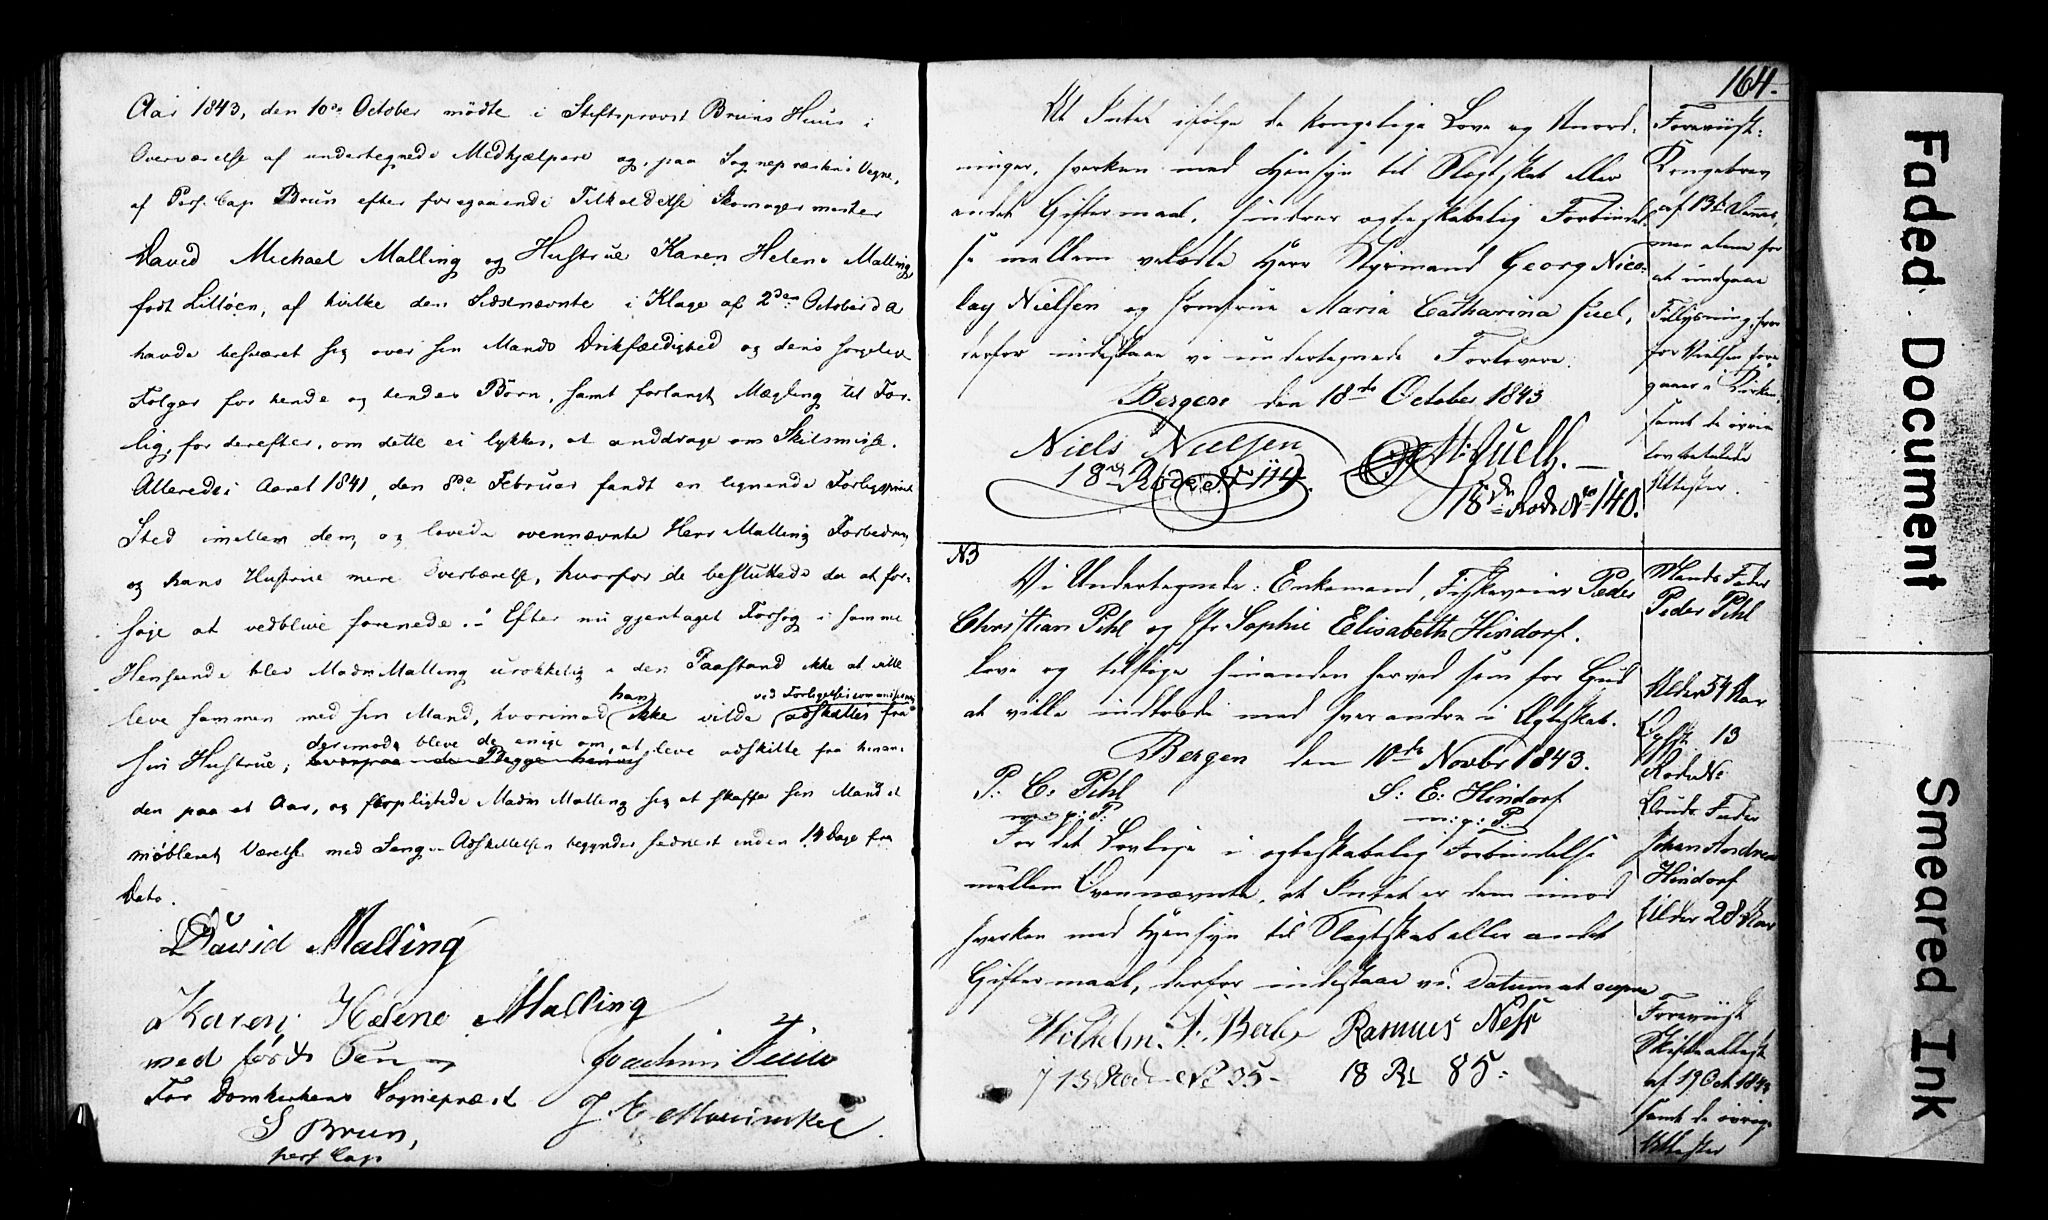 Aar 1843, den 10de October mødte i Stiftsprovst Bruns Huus i
Overværelse af undertegnede Medhjælpere og, paa Sognepræstens Vegne,
af Pers. Cap Brun efter foregaaende Tilholdelse Skomagermester
David Michael Malling og Hustrue Karen Helene Malling
født Lilløen, af hvilke den Sidstnævnte i Klage af 2den October d A
havde besværet sig over sin Mands Drikfældighed og dens sørgelige
Følger for hende og hendes Børn, samt forlangt Mægling til For-
lig, for derefter, om dette ei lykkes, at anddrage om Skilsmisse.
Allerede i Aaret 1841, den 8de Februar fandt en lignende Forligsprøve
Sted imellem dem, og lovede ovennævnte Herr Malling Forbedring
og hans Hustrue mere Overbærelse, hvorfor de besluttede da at for-
søge at vedblive forenede. Efter nu gjentaget Forsøg i samme
Henseende blev Madm Malling urokkelig i den Paastand ikke at ville
leve sammen med sin Mand, hvorimod han ikke vilde adskilles fra
ved Forligelsescommissionen
sin Hustrue; derimod bleve de enige om, at leve adskilte fra hinan-
den paa et Aar, og forpligtede Madm Malling sig at skaffe sin Mand et
møbleret Værelse med Seng. Adskillelsen begyndes senest inden 14 Dage fra
Dato.
David Malling
Karen Helene Malling
med ført Pen
For Domkirkens Sognepræst
S Brun,
pers Cap
Joachim
J E Mowinckel.
164.
At Intet ifølge de kongelige Love og Anord-
ninger, hverken med Hensyn til Slægtskab eller
andet Giftermaal, hindrer ægteskabelig Forbindel-
se mellem velædle Herr Styrmand Georg Nico-
lay Nielsen og Jomfrue Maria Catharina Juel,
derfor indestaae vi undertegnede Forlovere.
Bergen den 18de October 1843
Niels Nielsen
18de Rode No 114.
M: Juell.
18de Rode No 140.
Foreviist:
Kongebrev
af 13de Dennes,
men alene for
at undgaae
Tillysning, hvor
for Vielsen fore
gaaer i Kirken,
samt de øvrige
lovbefalede
Attester.
N3
Vi Undertegnede: Enkemand, Fiskeveier Peder
Christian Pihl og Jfr Sophie Elisabeth Hindorf.
love og tilsige hinanden herved som for Gud
at ville indtræde med hverandre i Ægteskab.
Bergen den 10de Novbr 1843.
P: C: Pihl
m: p: P:
S: E: Hindorf
m: p: P:
For det Lovlige i ægteskabelig Forbindelse
mellem Ovennævnte, at Intet er dem imod
hverken med Hensyn til Slægtskab eller andet
Giftermaal, derfor indestaae vi. Datum ut supra
Wilhelm
13 Rode No 35
Rasmus Ness
18 Rd 85:
Mands Fader
Peder Pihl
Alder 54 Aar
13
Rode No
Bruds Fader
Johan Andreas
Hindorf
Alder 28 Aar
Foreviist
Skifteattest
af 19 Oct 1843
samt de øvrige
Attester
Faded Document
Smeared Ink